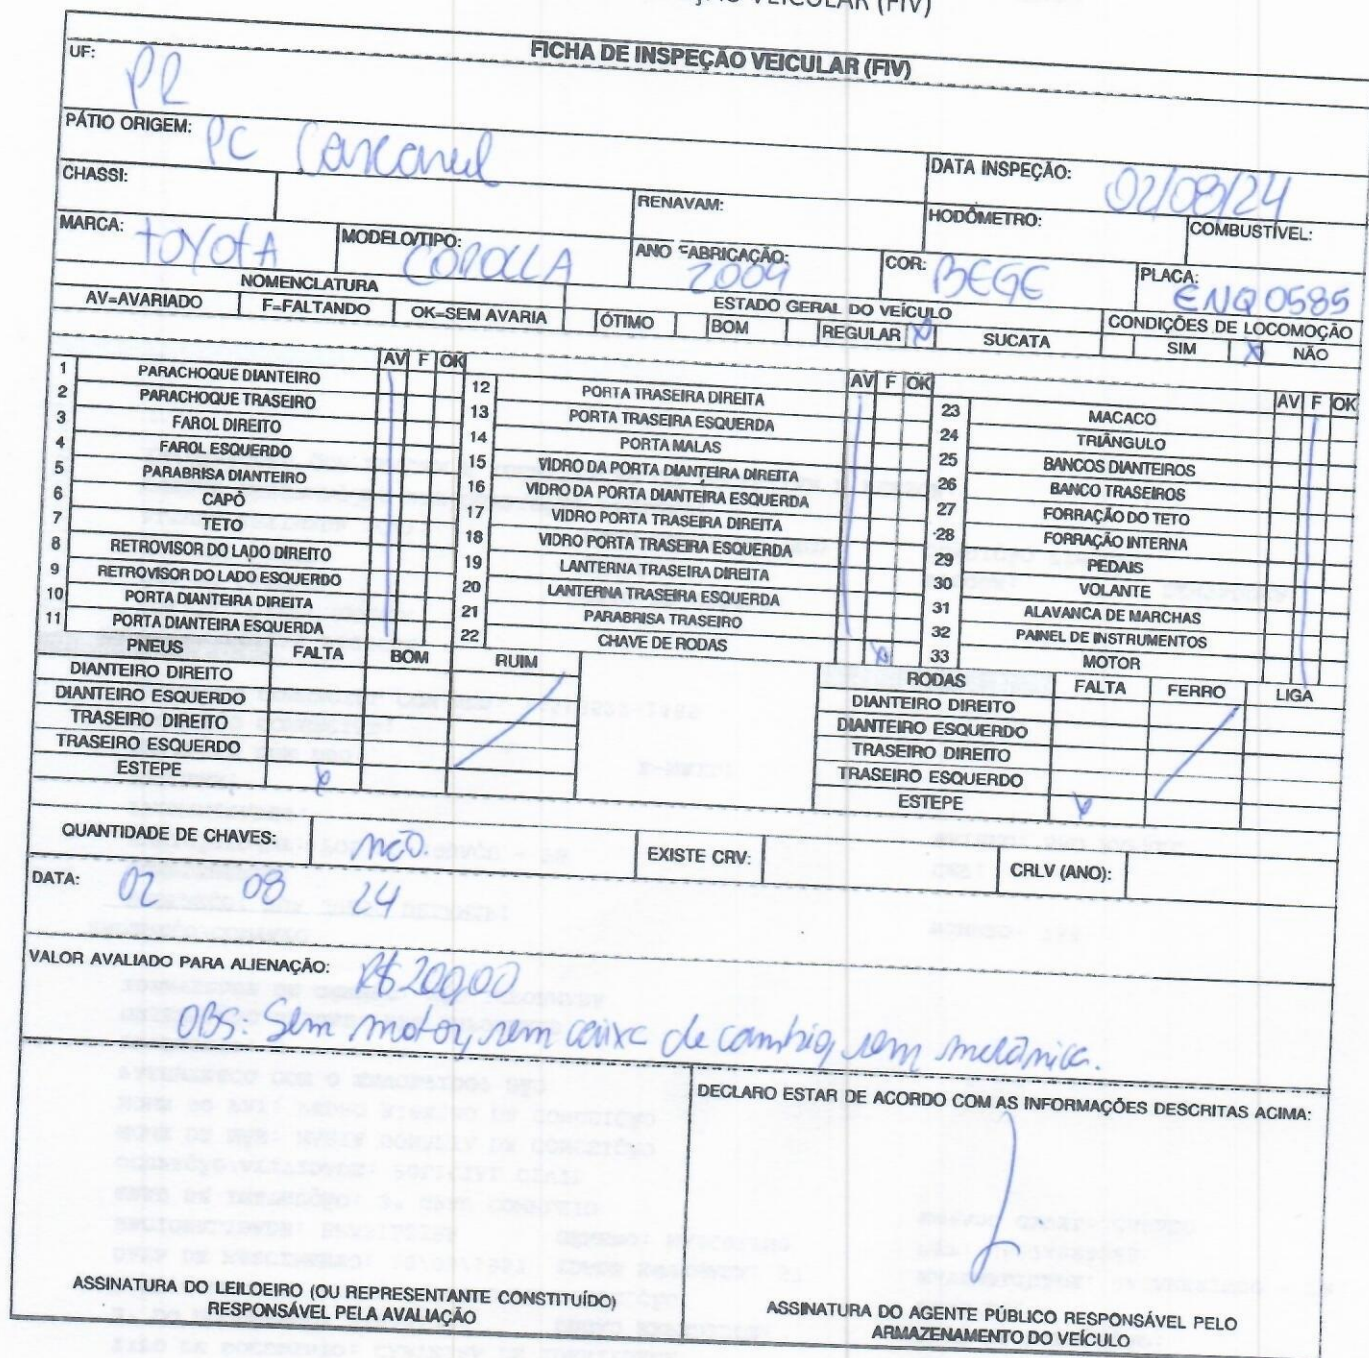 VEICULAR (FIV)
FICHA DE INSPEÇÃO VEICULAR (FIV)
UF: PR
PÁTIO ORIGEM: PC Cascavel
DATA INSPEÇÃO: 02/08/24
CHASSI:
RENAVAM:
HODÔMETRO:
COMBUSTÍVEL:
MARCA: TOYOTA
MODELO/TIPO: COROLLA
ANO FABRICAÇÃO: 2009
COR: BEGE
PLACA: ENQ0585
NOMENCLATURA
ESTADO GERAL DO VEÍCULO
CONDIÇÕES DE LOCOMOÇÃO
AV=AVARIADO F=FALTANDO OK=SEM AVARIA ÓTIMO BOM REGULAR X SUCATA SIM X NÃO
AV F OK
1 PARACHOQUE DIANTEIRO
2 PARACHOQUE TRASEIRO
3 FAROL DIREITO
4 FAROL ESQUERDO
5 PARABRISA DIANTEIRO
6 CAPÔ
7 TETO
8 RETROVISOR DO LADO DIREITO
9 RETROVISOR DO LADO ESQUERDO
10 PORTA DIANTEIRA DIREITA
11 PORTA DIANTEIRA ESQUERDA
AV F OK
12 PORTA TRASEIRA DIREITA
13 PORTA TRASEIRA ESQUERDA
14 PORTA MALAS
15 VIDRO DA PORTA DIANTEIRA DIREITA
16 VIDRO DA PORTA DIANTEIRA ESQUERDA
17 VIDRO PORTA TRASEIRA DIREITA
18 VIDRO PORTA TRASEIRA ESQUERDA
19 LANTERNA TRASEIRA DIREITA
20 LANTERNA TRASEIRA ESQUERDA
21 PARABRISA TRASEIRO
22 CHAVE DE RODAS X
AV F OK
23 MACACO
24 TRIÂNGULO
25 BANCOS DIANTEIROS
26 BANCO TRASEIROS
27 FORRAÇÃO DO TETO
28 FORRAÇÃO INTERNA
29 PEDAIS
30 VOLANTE
31 ALAVANCA DE MARCHAS
32 PAINEL DE INSTRUMENTOS
33 MOTOR
PNEUS FALTA BOM RUIM
DIANTEIRO DIREITO
DIANTEIRO ESQUERDO
TRASEIRO DIREITO
TRASEIRO ESQUERDO
ESTEPE X
RODAS FALTA FERRO LIGA
DIANTEIRO DIREITO
DIANTEIRO ESQUERDO
TRASEIRO DIREITO
TRASEIRO ESQUERDO
ESTEPE X
QUANTIDADE DE CHAVES: NÃO.
EXISTE CRV:
CRLV (ANO):
DATA: 02 08 24
VALOR AVALIADO PARA ALIENAÇÃO: R$ 200,00
OBS: Sem motor, sem caixa de cambio, sem mecânica.
DECLARO ESTAR DE ACORDO COM AS INFORMAÇÕES DESCRITAS ACIMA:
ASSINATURA DO LEILOEIRO (OU REPRESENTANTE CONSTITUÍDO)
RESPONSÁVEL PELA AVALIAÇÃO
ASSINATURA DO AGENTE PÚBLICO RESPONSÁVEL PELO
ARMAZENAMENTO DO VEÍCULO